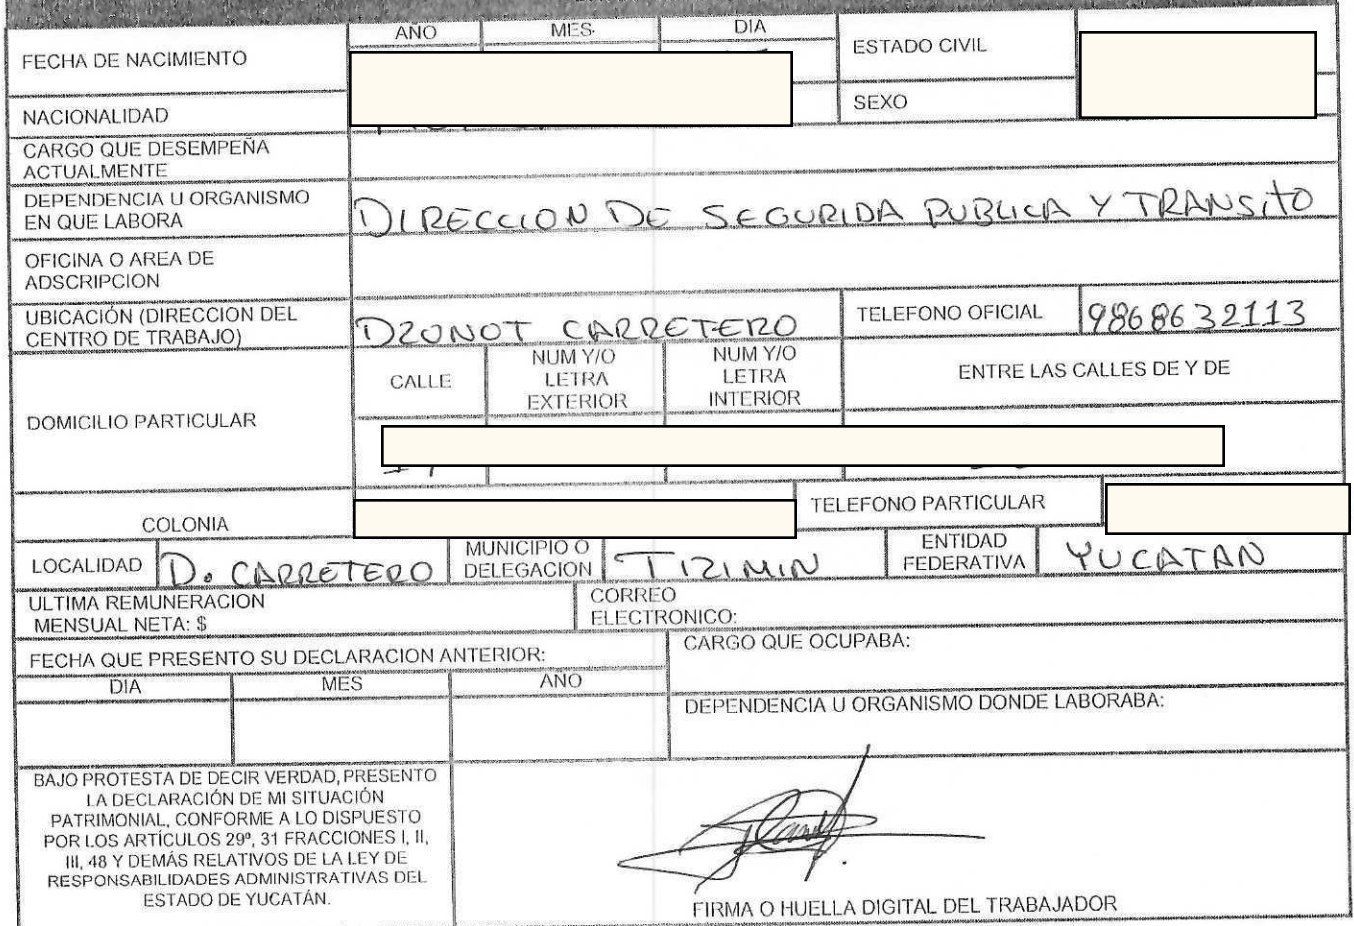 AÑO MES DIA
FECHA DE NACIMIENTO
ESTADO CIVIL
NACIONALIDAD
SEXO
CARGO QUE DESEMPEÑA
ACTUALMENTE
DEPENDENCIA U ORGANISMO
EN QUE LABORA
DIRECCION DE SEGURIDA PUBLICA Y TRANSITO
OFICINA O AREA DE
ADSCRIPCION
UBICACIÓN (DIRECCION DEL
CENTRO DE TRABAJO)
DZONOT CARRETERO
TELEFONO OFICIAL
9868632113
DOMICILIO PARTICULAR
CALLE
NUM Y/O
LETRA
EXTERIOR
NUM Y/O
LETRA
INTERIOR
ENTRE LAS CALLES DE Y DE
COLONIA
TELEFONO PARTICULAR
LOCALIDAD
D. CARRETERO
MUNICIPIO O
DELEGACION
TIZIMIN
ENTIDAD
FEDERATIVA
YUCATAN
ULTIMA REMUNERACION
MENSUAL NETA: $
CORREO
ELECTRONICO:
FECHA QUE PRESENTO SU DECLARACION ANTERIOR:
CARGO QUE OCUPABA:
DIA MES AÑO
DEPENDENCIA U ORGANISMO DONDE LABORABA:
BAJO PROTESTA DE DECIR VERDAD, PRESENTO
LA DECLARACIÓN DE MI SITUACIÓN
PATRIMONIAL, CONFORME A LO DISPUESTO
POR LOS ARTÍCULOS 29º, 31 FRACCIONES I, II,
III, 48 Y DEMÁS RELATIVOS DE LA LEY DE
RESPONSABILIDADES ADMINISTRATIVAS DEL
ESTADO DE YUCATÁN.
FIRMA O HUELLA DIGITAL DEL TRABAJADOR